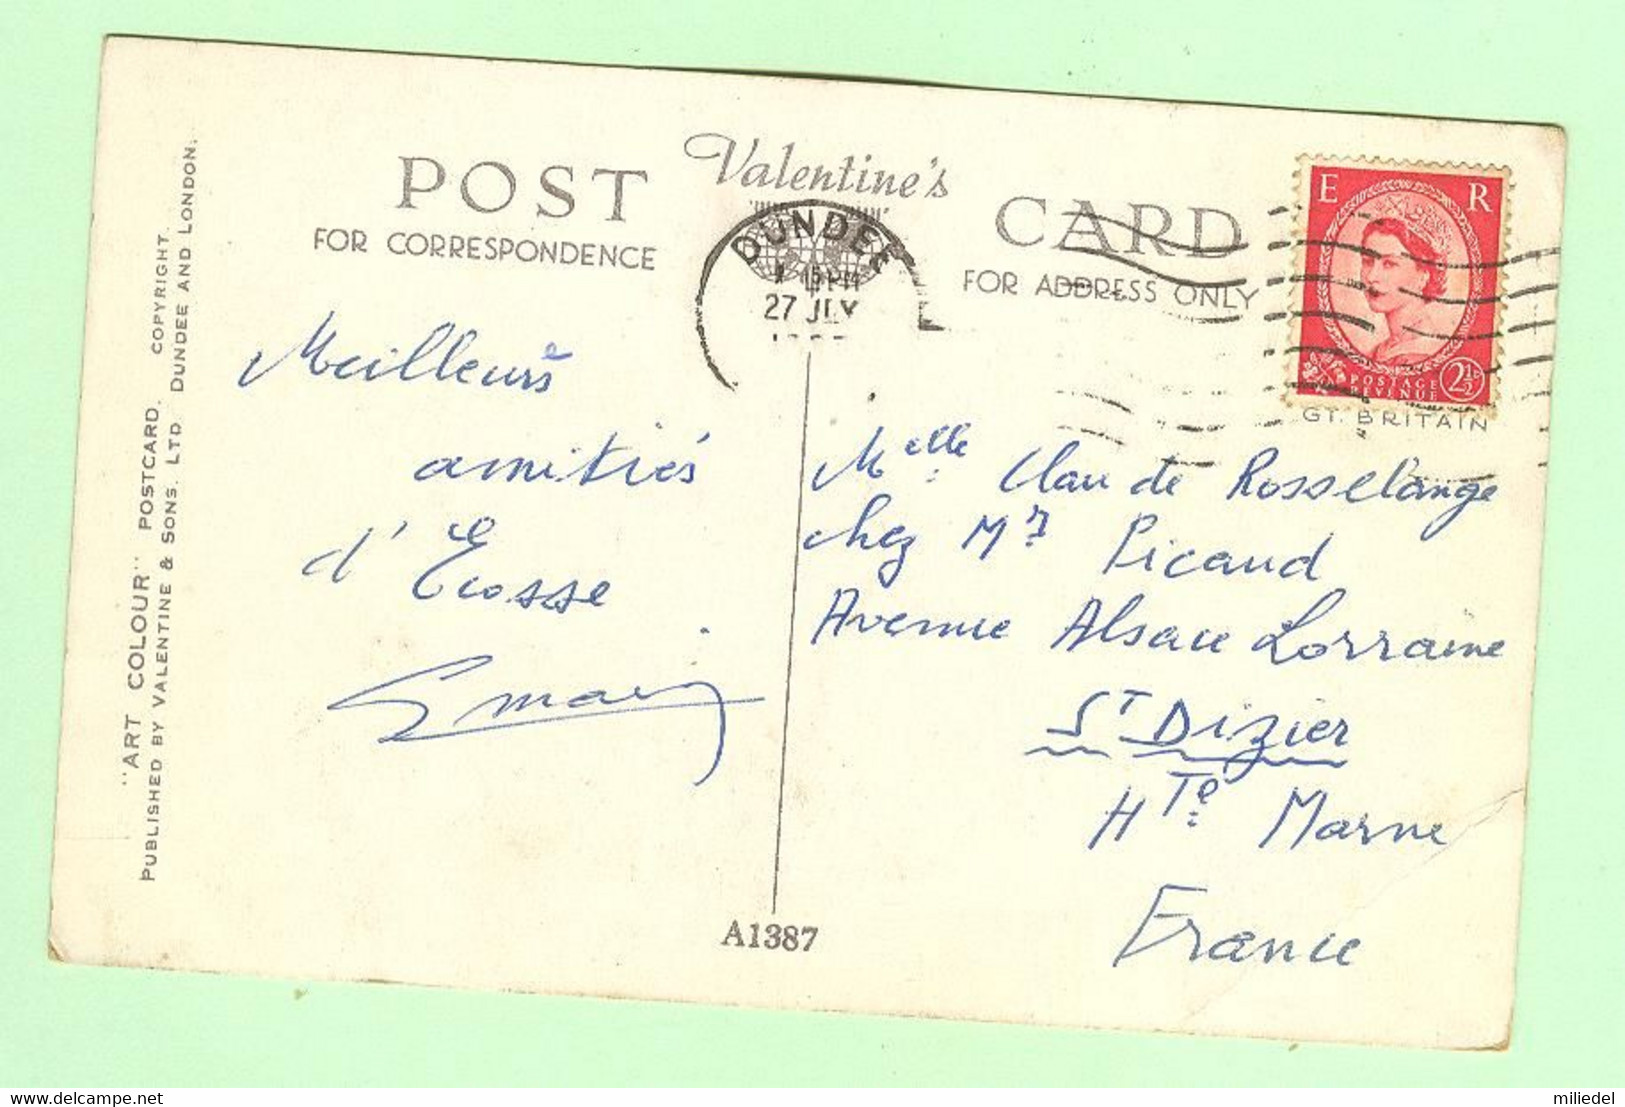 POST Valentine's CARD
FOR CORRESPONDENCE
FOR ADDRESS ONLY
DUNDEE
15 PM
27 JLY
E R
POSTAGE
REVENUE
2½
GT. BRITAIN
"ART COLOUR" POSTCARD. COPYRIGHT.
PUBLISHED BY VALENTINE & SONS. LTD. DUNDEE AND LONDON.
Meilleurs
amitiés
d'Ecosse
Melle Claude Rosselange
chez Mr Picaud
Avenue Alsace Lorraine
St Dizier
Hte Marne
France
A1387
miliedel